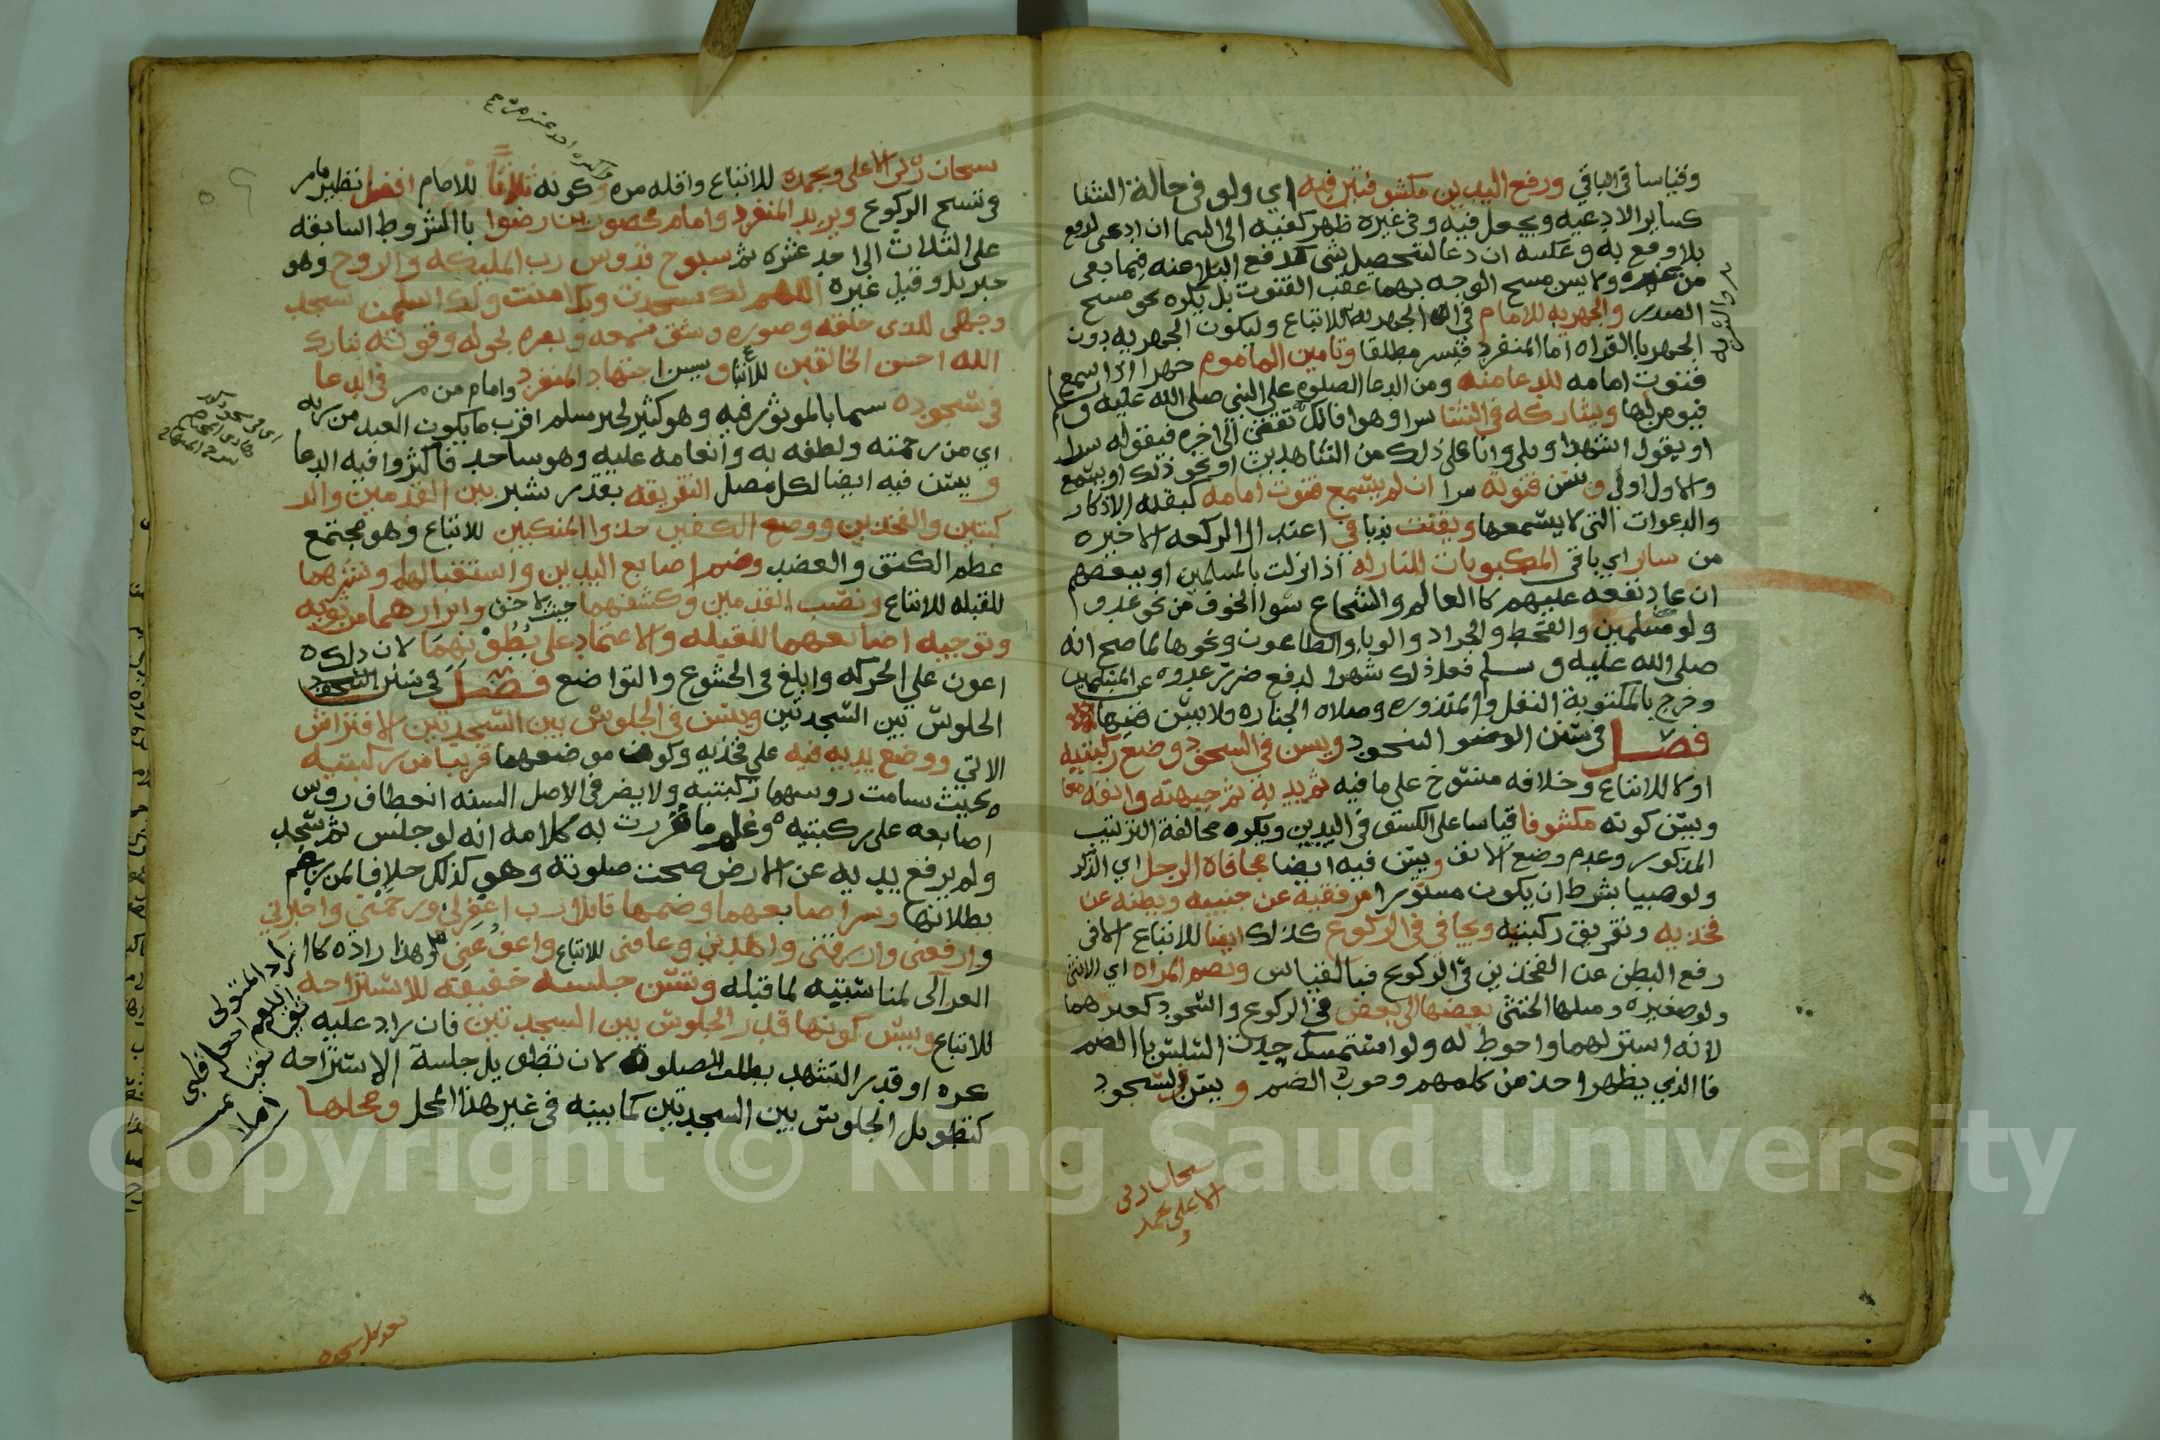 وقياسا في الباقي ورفع اليدين مكشوفتين فيه اي ولو في حالة الثنا
كساير الادعيه ويجعل فيه وفي غيره ظهر كفيه الى السما ان ادعى لدفع
بلا وقع به وعكسه ان دعا لتحصيل شي كدفع البلا عنه فيما بقي
من عمره ولا يسن مسح الوجه بهما عقب القنوت بل يكره نحو مسح
الصدر والجهر به للامام في الجهريه للاتباع وليكون الجهر به دون
الجهر بالقراه اما المنفرد فيسر مطلقا وتامين الماموم جهرا اذا سمع
قنوت امامه للدعا منه ومن الدعا الصلوه على النبي صلى الله عليه وسلم
فيومن لها ويشاركه في الثنا سرا وهو فانك تقضي الى اخره فيقوله سرا
او يقول اشهد او بلى وانا على ذلك من الشاهدين او نحو ذلك او يستمع
والاول اولى ويسن قنوته سرا ان لم يسمع قنوت امامه كبقيه الاذكار
والدعوات التي لا يسمعها ويقنت ندبا في اعتدال الركعه الاخيره
من ساير اي باقي المكتوبات للنازله اذا نزلت بالمسلمين او ببعضهم
ان عاد نفعه عليهم كالعالم والشجاع سوا الخوف من نحو عدو
ولو مسلمين والقحط والجراد والوبا والطاعون ونحوها لما صح انه
صلى الله عليه وسلم فعل ذلك شهرا لدفع ضرر عدوه عن المسلمين
وخرج بالمكتوبة النفل والمنذوره وصلاه الجنازه ولا يسن فيها
فصل في سنن السجود ويسن في السجود وضع ركبتيه
اولا للاتباع وخلافه منسوخ على ما فيه ثم يديه ثم جبهته وانفه معا
ويسن كونه مكشوفا قياسا على الكشف في اليدين ويكره مخالفة الترتيب
المذكور وعدم وضع الانف ويسن فيه ايضا مجافاة الرجل اي الذكر
ولو صبيا بشرط ان يكون مستورا مرفقيه عن جنبيه وبطنه عن
فخذيه وتفريق ركبتيه ويجافي في الركوع كذلك ايضا للاتباع الا في
رفع البطن عن الفخذين في الركوع فبالقياس وتضم المراه اي الانثى
ولو صغيره ومثلها الخنثى بعضها الى بعض في الركوع والسجود كغيرهما
لانه استر لها واحوط له ولو استمسك حدث السلس بالضم
فالذي يظهر اخذ من كلامهم وجوب الضم ويسن في السجود
سبحان ربي
الاعلى وبحمد
سبحان ربي الاعلى وبحمده للاتباع واقله مره وكونه ثلاثا للامام افضل نظير مامر
في تسبيح الركوع ويزيد المنفرد وامام محصورين رضوا بالشروط السابقه
على الثلاث الى احد عشره ثم سبوح قدوس رب الملئكه والروح وهو
جبريل وقيل غيره اللهم لك سجدت وبك امنت ولك اسلمت سجد
وجهي للذي خلقه وصوره وشق سمعه وبصره بحوله وقوته تبارك
الله احسن الخالقين للاتباع ويسن اجتهاد المنفرد وامام من مر في الدعا
في سجوده سيما بالموثور فيه وهو كثير لخبر مسلم اقرب ما يكون العبد من ربه
اي من رحمته ولطفه به وانعامه عليه وهو ساجد فاكثروا فيه الدعا
ويسن فيه ايضا لكل مصل التفرقه بقدر شبر بين القدمين والر
كبتين والفخذين ووضع الكفين حذوا المنكبين للاتباع وهو مجتمع
عظم الكتف والعضد وضم اصابع اليدين واستقبالها ونشرهما
للقبله للاتباع ونصب القدمين وكشفهما حيث لا خف وابرازهما من ثوبه
وتوجيه اصابعهما للقبله والاعتماد على بطونهما لان ذلك
اعون على الحركه وابلغ في الخشوع والتواضع فصل في سنن
الجلوس بين السجدتين ويسن في الجلوس بين السجدتين الافتراش
الاتي ووضع يديه فيه على فخذيه وكون موضعهما قريبا من ركبتيه
بحيث سامت روسهما ركبتيه ولا يضر في الاصل السنه انعطاف روس
اصابعه على ركبتيه وعلم مما قررت به كلامه انه لو جلس ثم سجد
ولم يرفع يديه عن الارض صحت صلوته وهي كذلك خلافا لمن زعم
بطلانها ونشر اصابعهما وضمها قايلا رب اغفر لي وارحمني واجبرني
وارفعني وارزقني واهدني وعافني للاتباع واعف عني وهذا زاده
الغزالي لمناسبته لما قبله وتسن جلسه خفيفه للاستراحه
للاتباع ويسن كونها قدر الجلوس بين السجدتين فان زاد عليه
عره او قدر التشهد بطلت الصلوة لان تطويل جلسة الاستراحه
كتطويل الجلوس بين السجدتين كما بينه في غير هذا المحل ومحلها
بعد كل سجده
Copyright © King Saud University